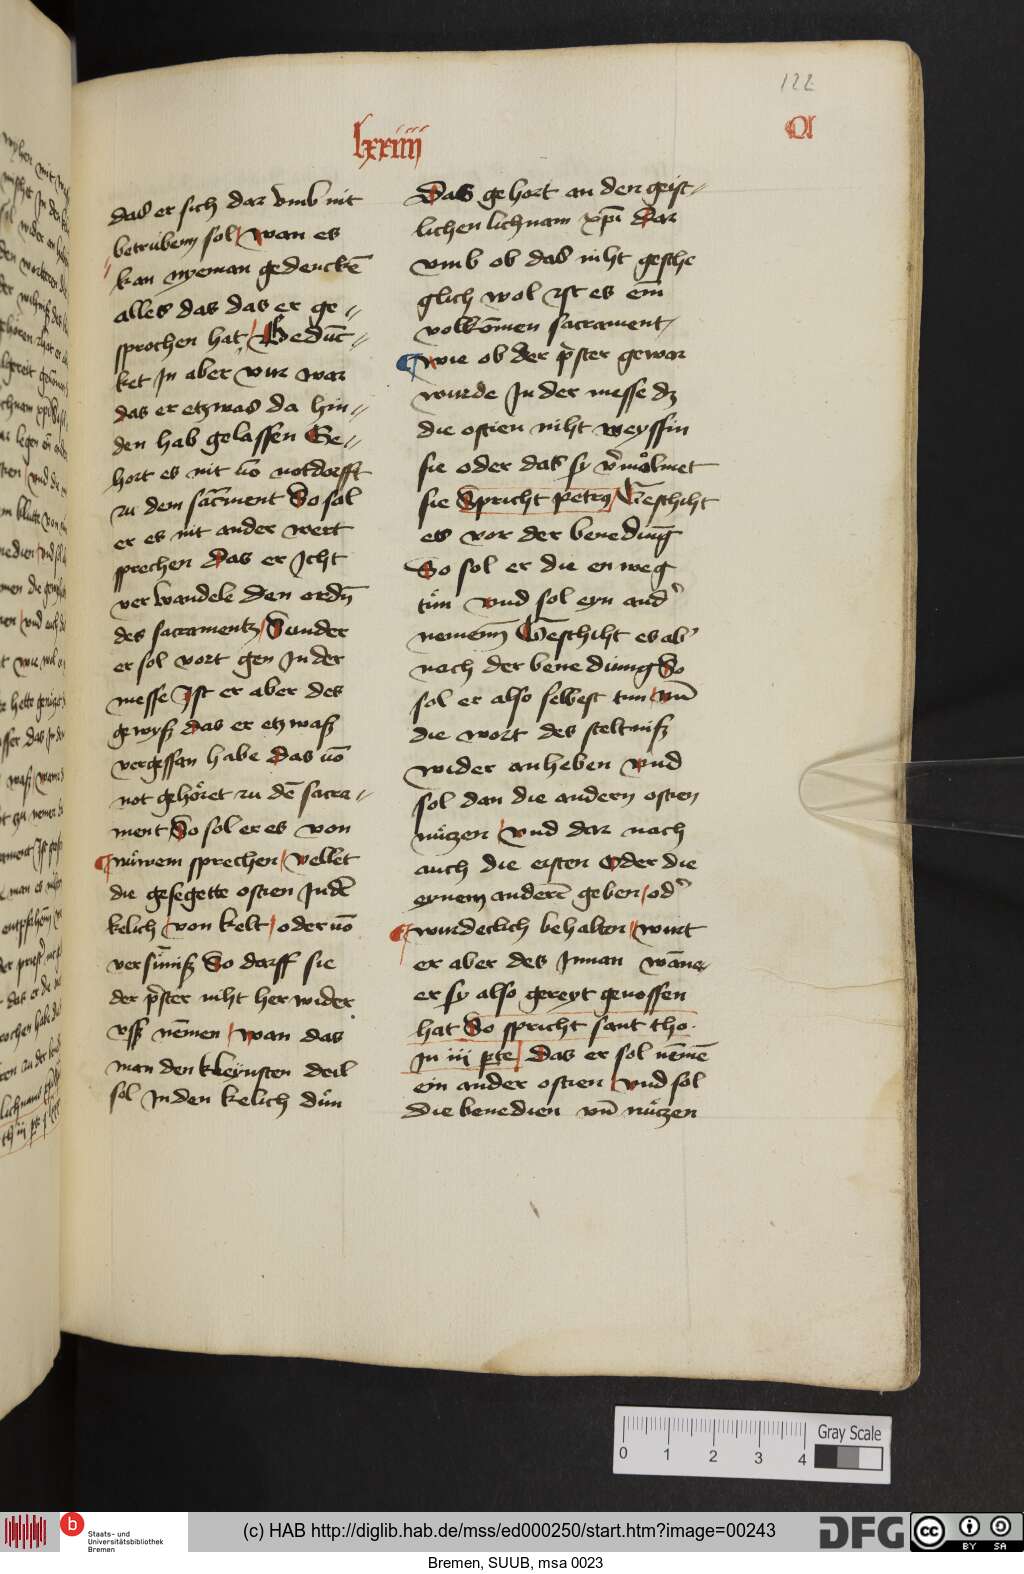 122
lxxiiij
A
das er sich dar vmb nit
betrubem sol wan es
kan nyeman gedenckē
alles das das er ge〃
sprochen hat / Bedūc〃
ket jn aber vur war
das er etzwas da hin〃
den hab gelassen Ge〃
hort es nit vō notdorfft
zu dem sac̄ment So sol
er es nit ander wert
sprechen Das er Icht
ver wandele den ordn̄
des sacramentz / Sunder
er sol vort gen In der
messe Ist er aber des
gewyß das er etzwaß
vergessan habe Das vō
not gehoͤret zu dē sacra〃
ment So sol er es von
nuͤwem sprechen / vellet
die gesegette ostien In dē
kelich / von kelt / oder vō
versūniß So darff sie
der p̄ster niht her wider
vß nēmen / wan das
man den kleynsten deil
sol In den kelich duͤn
Das gehort an den geist〃
lichen lichnam xp̄i Dar
vmb ob das niht gesche
glich wol ist es eīn
volkōmen sacrament /
wie ob der p̄ster gewar
wurde In der messe dz
die ostien niht weyssin
sie oder das sy v̄moͤlmet
sie Spricht petrꝯ / Geschiht
es vor der benedūg
So sol er die en weg
tuͤn vnd sol eyn and'
nemem̄ Geschiht es ab'
nach der benedūng So
sol er also selbest tun vn̄
die wort des steltniß
wider anheben vnd
sol dan die andern ostien
nuͤczen / vnd dar nach
auch die ersten Oder die
eynem anderē geben / od'
wirdeclich behalten / wurt
er aber des Innan wāne
er sy also gereyt genossen
hat So spricht sant tho.
In iij p̄te / Das er sol nēmē
ein ander ostien vnd sol
die benedien vn̄ nuͤczen
0 1 2 3 4
Gray Scale
b
Staats- und
Universitätsbibliothek
Bremen
(c) HAB http://diglib.hab.de/mss/ed000250/start.htm?image=00243
DFG
cc
BY SA
Bremen, SUUB, msa 0023